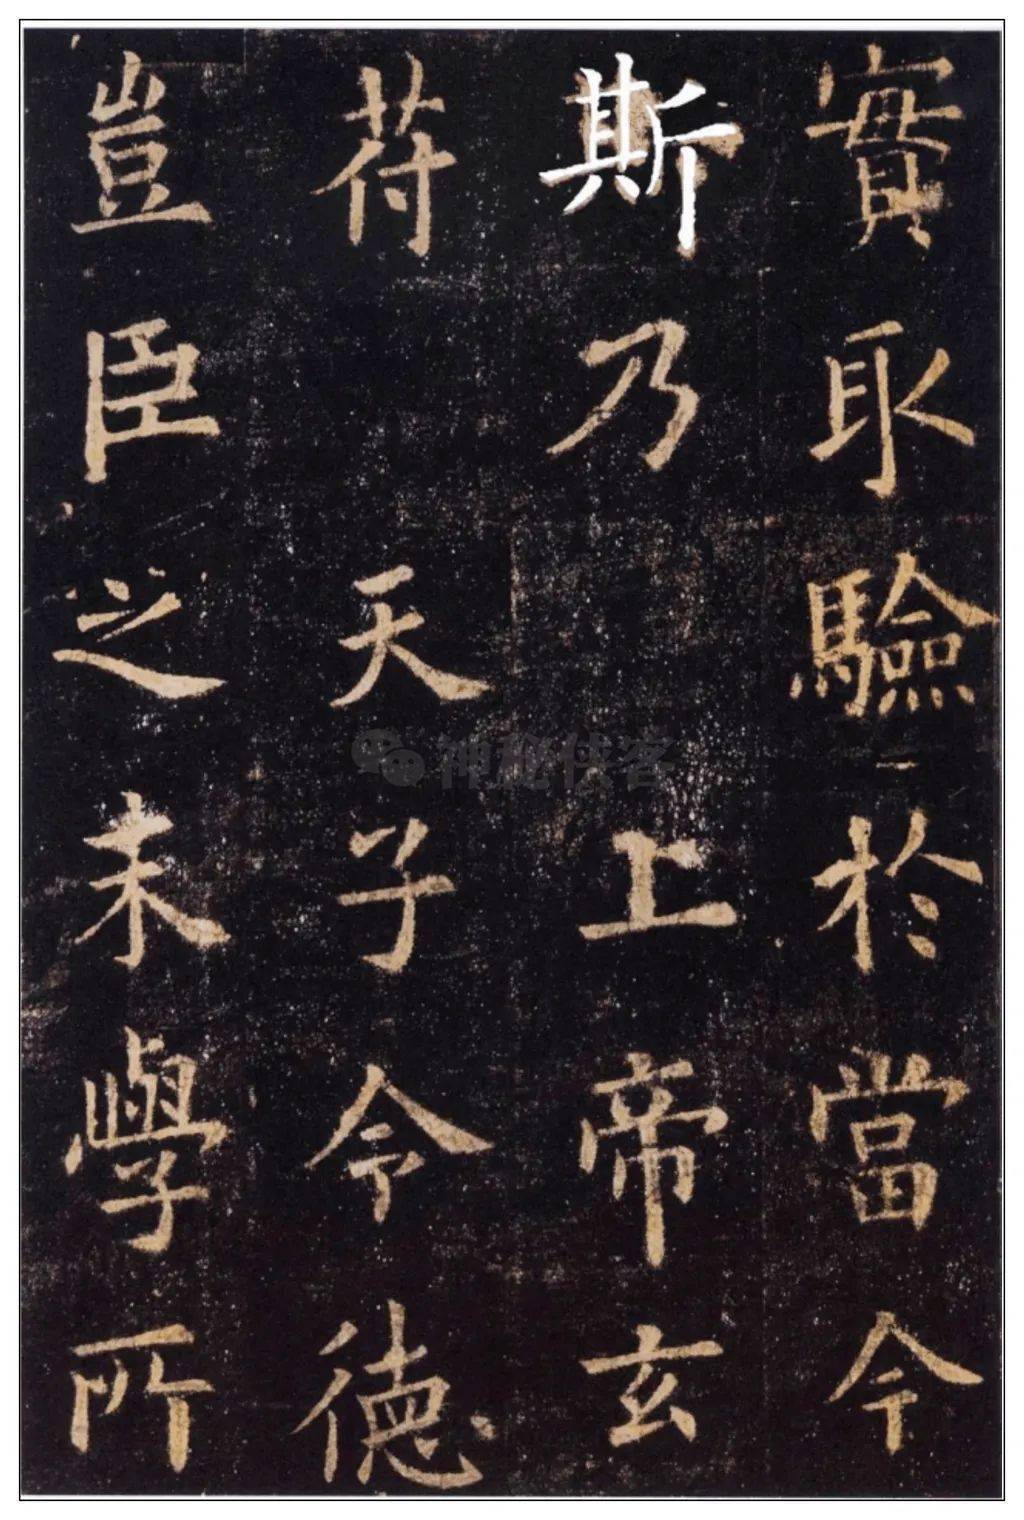 實取驗於當今
斯乃上帝玄
苻天子令德
豈臣之末學所
神秘侠客